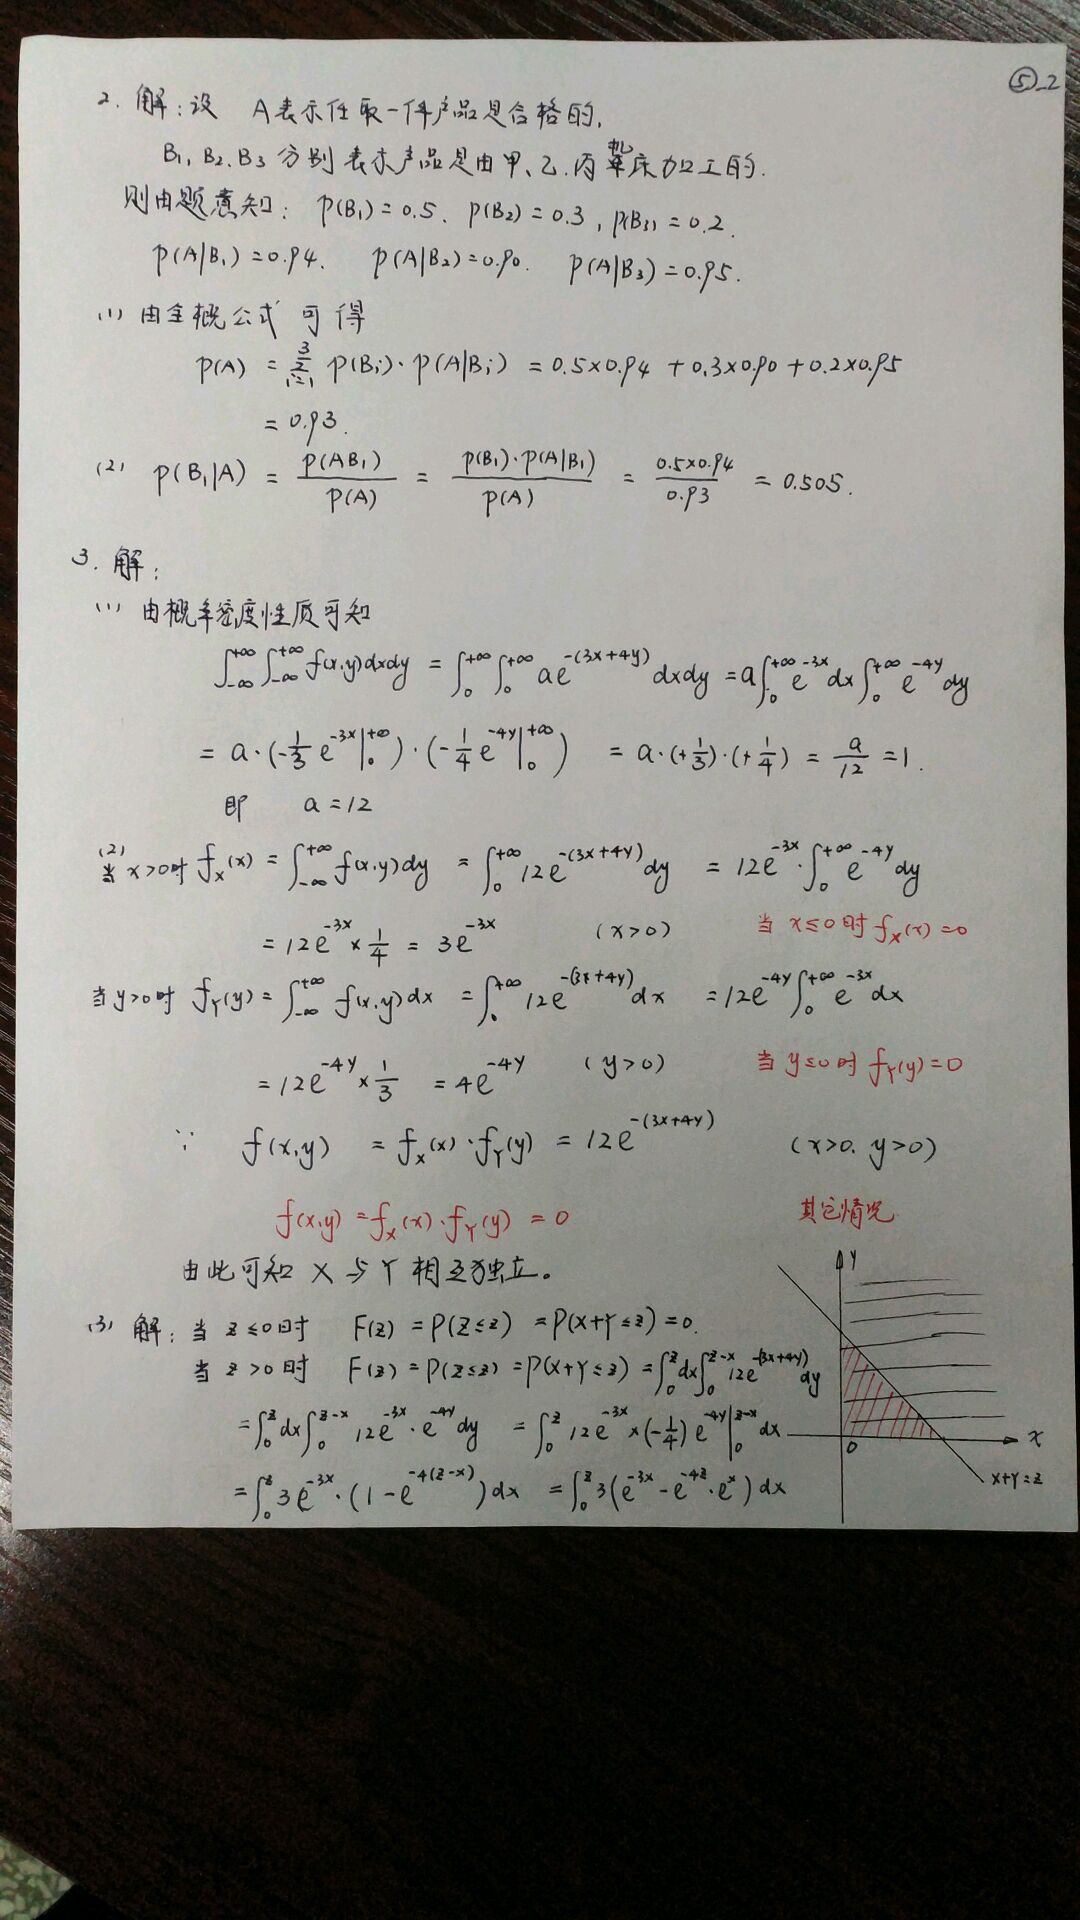 ⑤_2
2. 解:设 A表示任取一件产品是合格的,
B₁, B₂. B₃ 分别表示产品是由甲、乙.丙机床加工的.
则由题意知: P(B₁)=0.5. P(B₂)=0.3, P(B₃)=0.2.
P(A|B₁)=0.94. P(A|B₂)=0.90. P(A|B₃)=0.95.
(1) 由全概公式 可得
P(A) = ∑_{i=1}^{3} P(Bᵢ)·P(A|Bᵢ) = 0.5×0.94 + 0.3×0.90 + 0.2×0.95
= 0.93.
(2) P(B₁|A) = P(AB₁)/P(A) = P(B₁)·P(A|B₁)/P(A) = 0.5×0.94/0.93 = 0.505.
3. 解:
(1) 由概率密度性质可知
∫_{-∞}^{+∞}∫_{-∞}^{+∞} f(x,y)dxdy = ∫_0^{+∞}∫_0^{+∞} ae^{-(3x+4y)} dxdy = a∫_0^{+∞} e^{-3x}dx ∫_0^{+∞} e^{-4y}dy
= a·(-1/3 e^{-3x}|_0^{+∞})·(-1/4 e^{-4y}|_0^{+∞}) = a·(+1/3)·(+1/4) = a/12 = 1.
即 a=12
(2) 当x>0时 f_X(x) = ∫_{-∞}^{+∞} f(x,y)dy = ∫_0^{+∞} 12e^{-(3x+4y)}dy = 12e^{-3x}·∫_0^{+∞} e^{-4y}dy
= 12e^{-3x}×1/4 = 3e^{-3x} (x>0) 当 x≤0时 f_X(x)=0
当y>0时 f_Y(y) = ∫_{-∞}^{+∞} f(x,y)dx = ∫_0^{+∞} 12e^{-(3x+4y)}dx = 12e^{-4y}∫_0^{+∞} e^{-3x}dx
= 12e^{-4y}×1/3 = 4e^{-4y} (y>0) 当 y≤0时 f_Y(y)=0
∵ f(x,y) = f_X(x)·f_Y(y) = 12e^{-(3x+4y)} (x>0. y>0)
f(x,y) = f_X(x)·f_Y(y) = 0 其它情况
由此可知 X 与 Y 相互独立。
(3) 解: 当 z≤0时 F(z) = P(Z≤z) = P(X+Y≤z) = 0.
当 z>0时 F(z) = P(Z≤z) = P(X+Y≤z) = ∫_0^z dx∫_0^{z-x} 12e^{-(3x+4y)}dy
= ∫_0^z dx∫_0^{z-x} 12e^{-3x}·e^{-4y}dy = ∫_0^z 12e^{-3x}×(-1/4)e^{-4y}|_0^{z-x} dx
= ∫_0^z 3e^{-3x}·(1-e^{-4(z-x)})dx = ∫_0^z 3(e^{-3x}-e^{-4z}·e^x)dx
Y
0
X
x+y=z